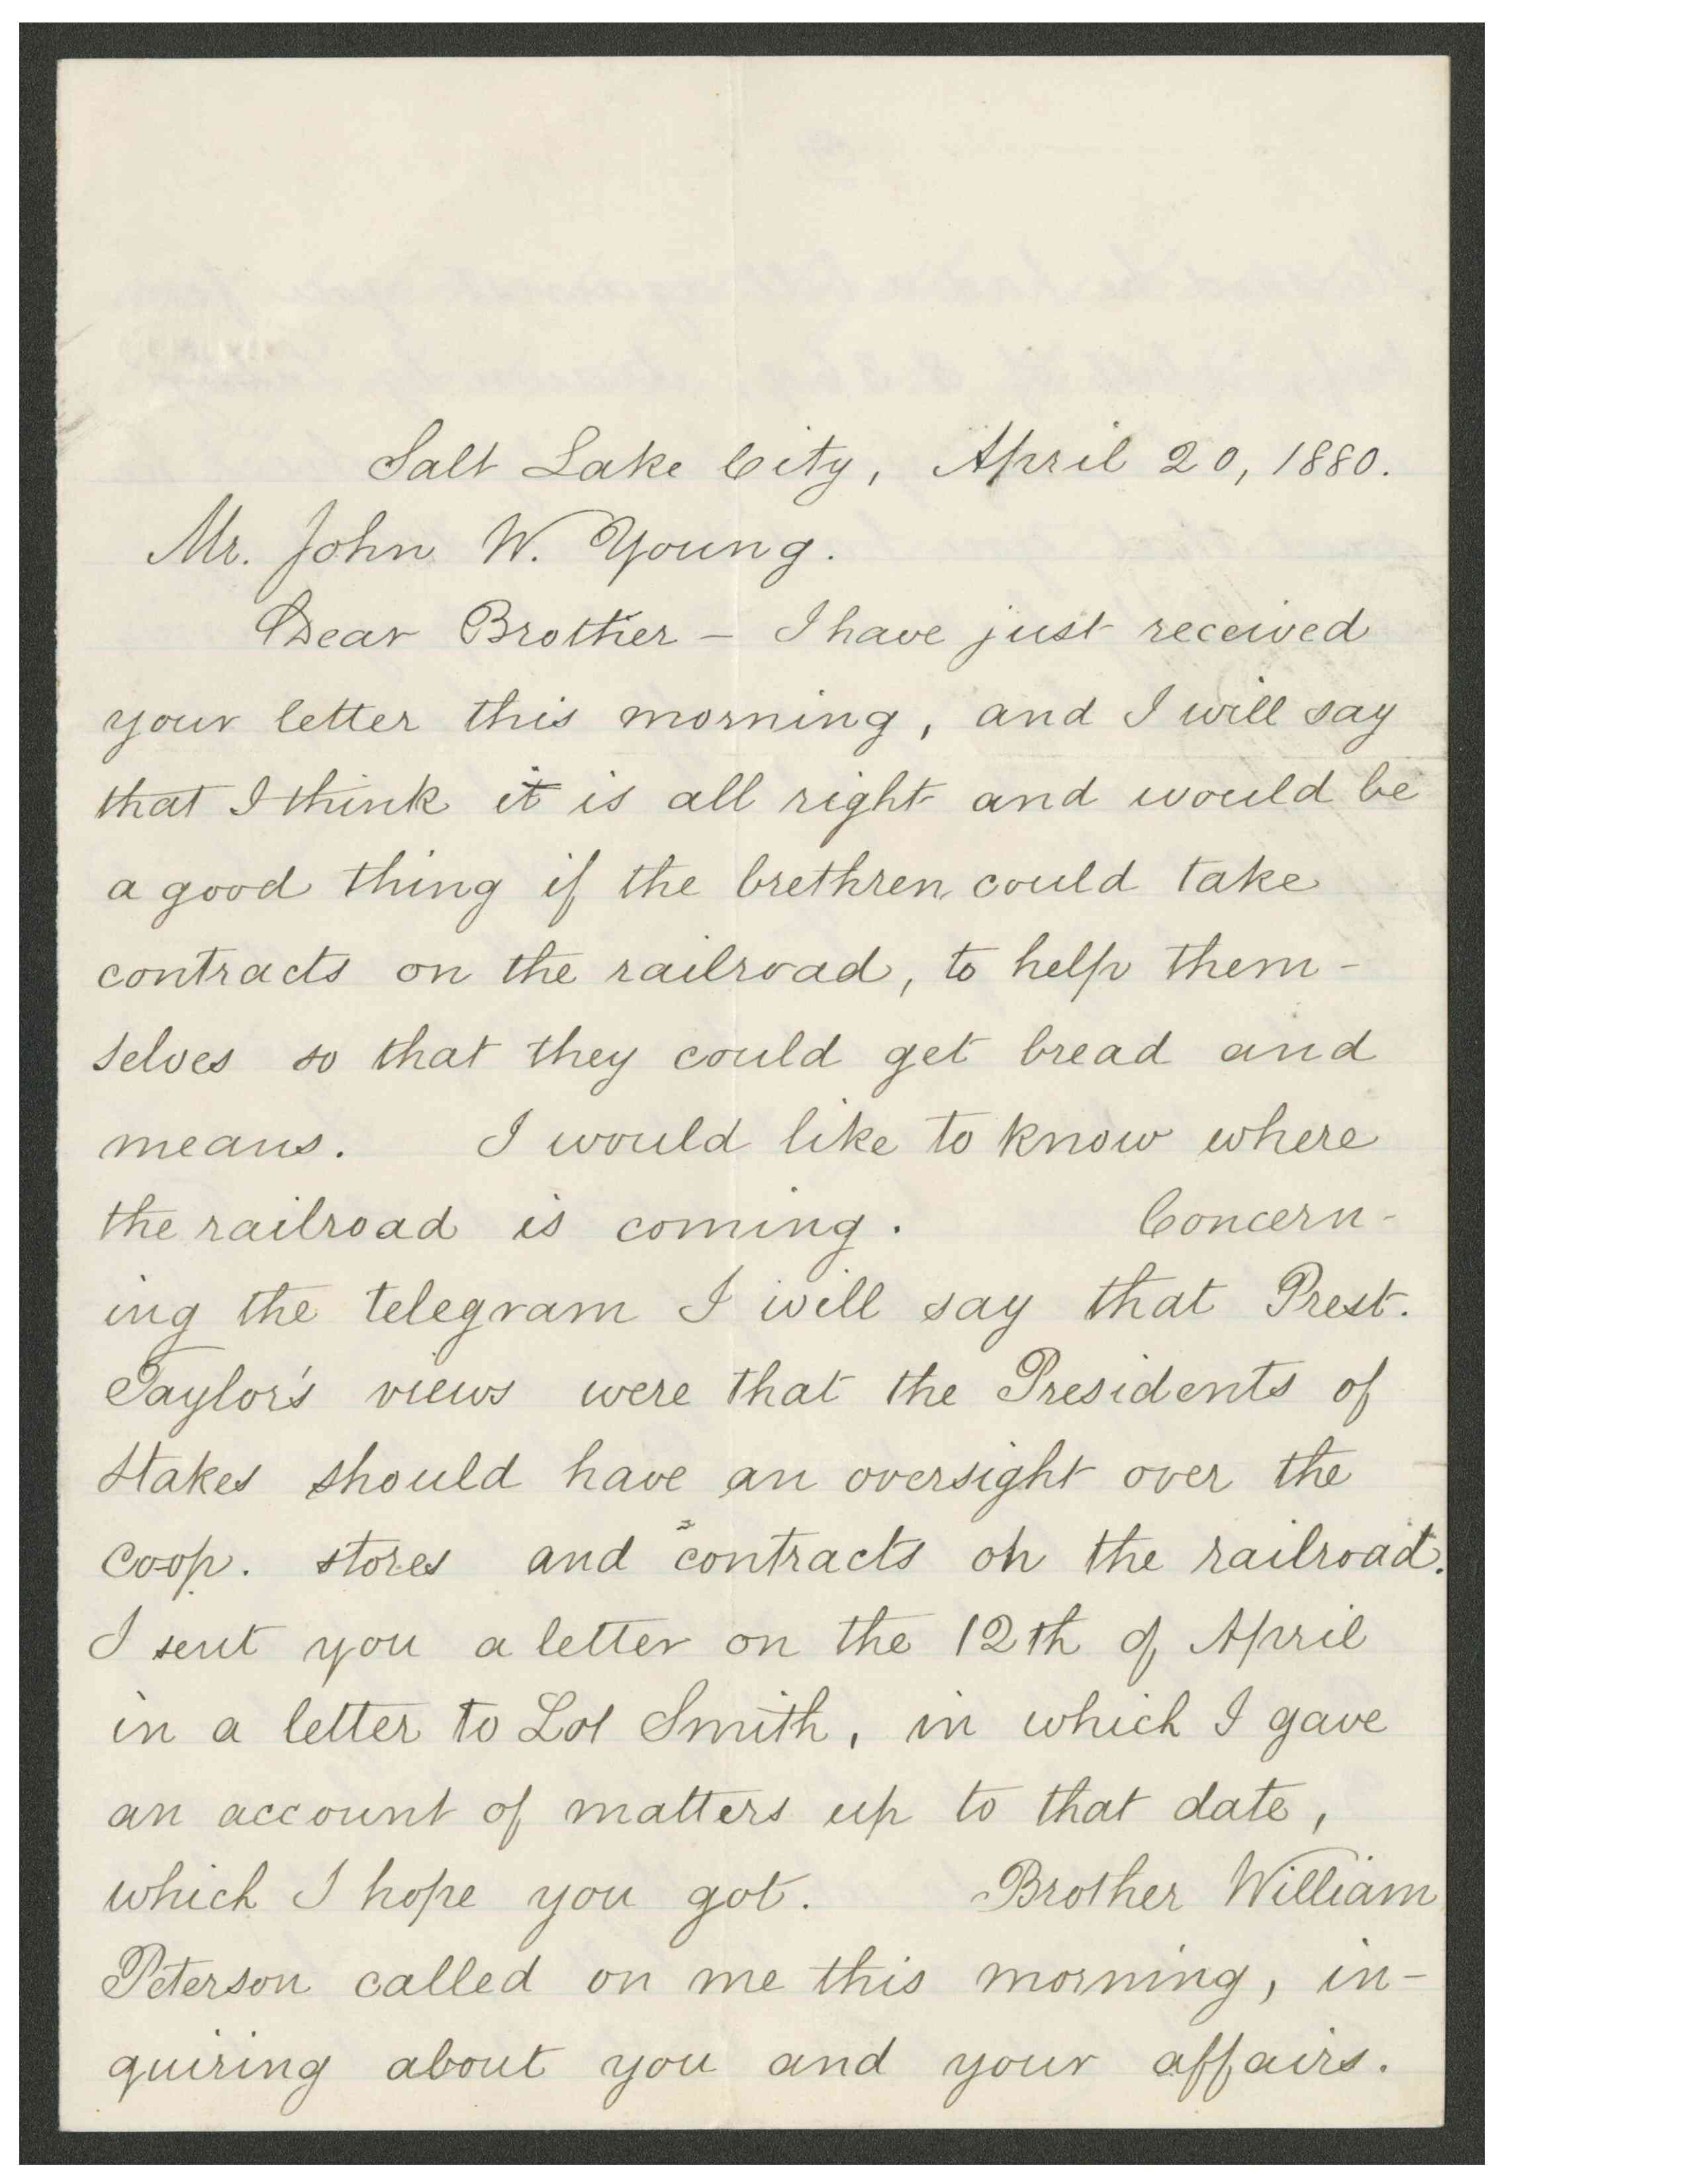 Salt Lake City, April 20, 1880.
Mr. John W. Young.
Dear Brother – I have just received
your letter this morning, and I will say
that I think it is all right and would be
a good thing if the brethren could take
contracts on the railroad, to help them-
selves so that they could get bread and
means. I would like to know where
the railroad is coming. Concern-
ing the telegram I will say that Prest.
Taylor's views were that the Presidents of
Stakes should have an oversight over the
Co-op. stores and contracts on the railroad.
I sent you a letter on the 12th of April
in a letter to Lot Smith, in which I gave
an account of matters up to that date,
which I hope you got. Brother William
Peterson called on me this morning, in-
quiring about you and your affairs.